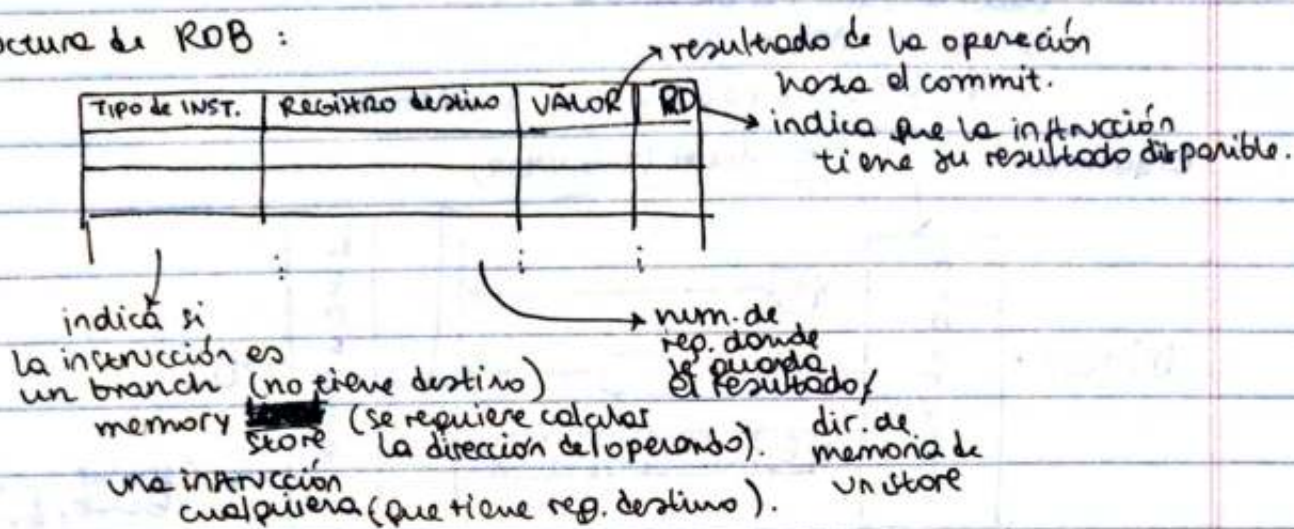 ctura de ROB :
resultado de la operación
hasta el commit.
TIPO de INST. | REGISTRO destino | VALOR | RD
indica que la instrucción
tiene su resultado disponible.
indica si
la instrucción es
un branch (no tiene destino)
memory store (se requiere calcular
la dirección del operando).
una instrucción
cualquiera (que tiene reg. destino).
num. de
reg. donde
se guarda
el resultado/
dir. de
memoria de
un store